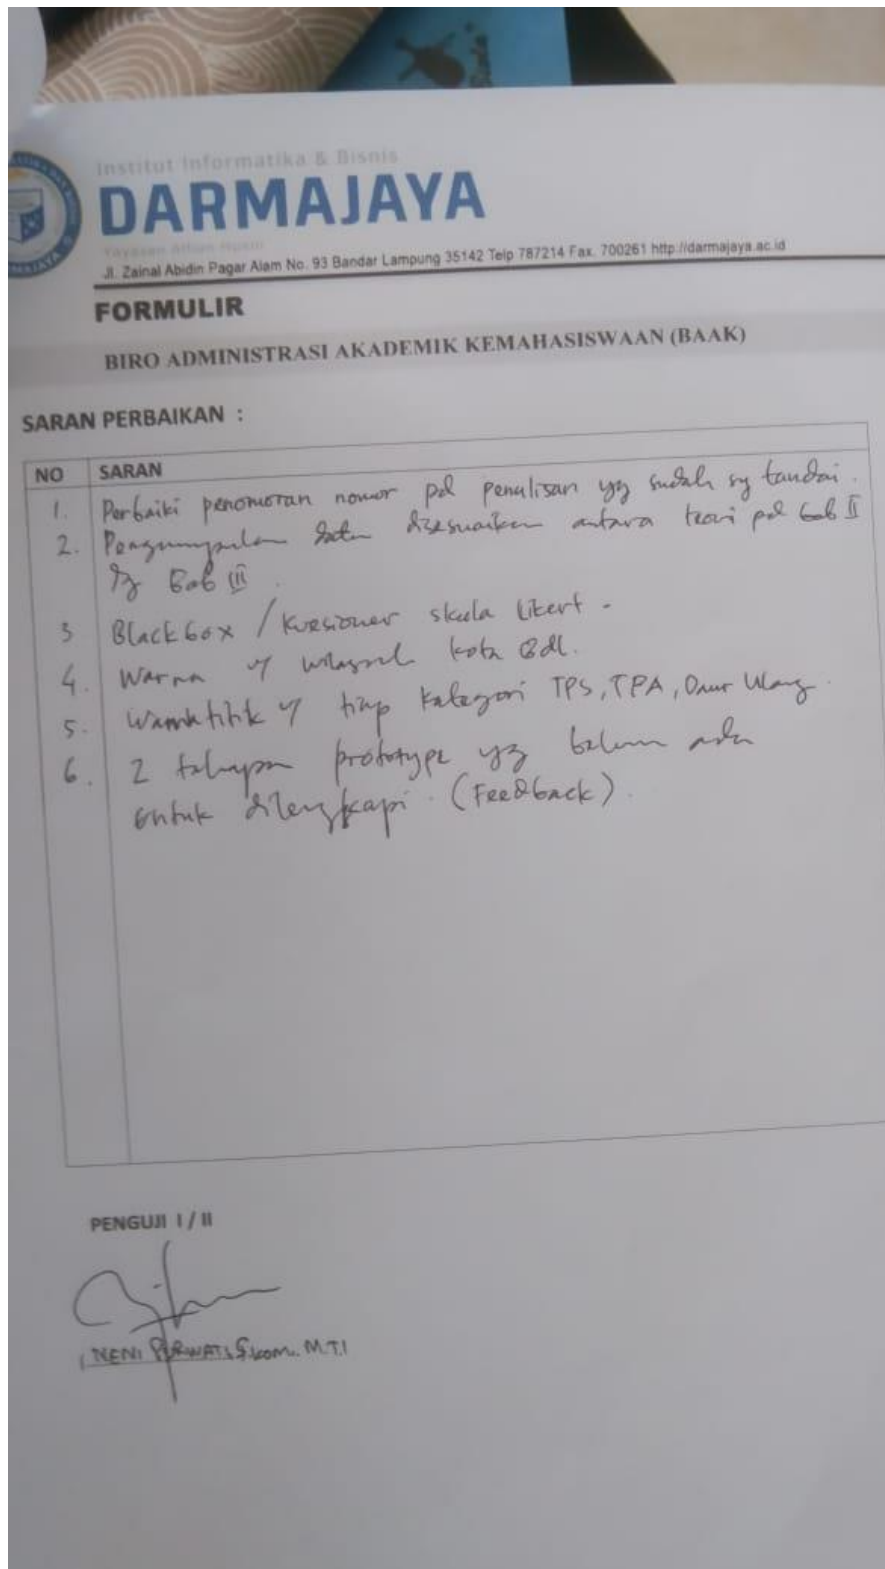 Institut Informatika & Bisnis
DARMAJAYA
Yayasan Alfian Husin
Jl. Zainal Abidin Pagar Alam No. 93 Bandar Lampung 35142 Telp 787214 Fax. 700261 http://darmajaya.ac.id
FORMULIR
BIRO ADMINISTRASI AKADEMIK KEMAHASISWAAN (BAAK)
SARAN PERBAIKAN :
NO SARAN
1. Perbaiki penomoran nomor pd penulisan yg sudah sy tandai.
2. Pengumpulan data disesuaikan antara teori pd bab II
dg Bab III.
3 Blackbox / Kuesioner skala likert.
4. Warna u/ wilayah kota Bdl.
5. Warna titik u/ tiap kategori TPS, TPA, Daur Ulang.
6. 2 tahapan prototype yg belum ada
untuk dilengkapi. (Feedback).
PENGUJI I / II
NENI PURWATI, S.Kom., M.T.I